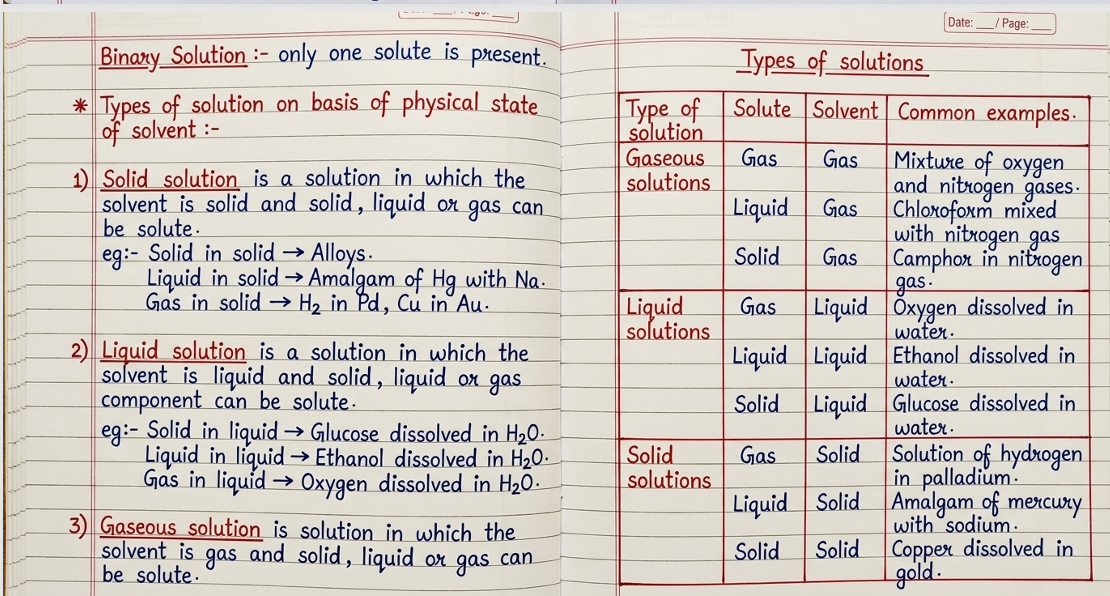 Binary Solution :- only one solute is present.
* Types of solution on basis of physical state
of solvent :-
1) Solid solution is a solution in which the
solvent is solid and solid, liquid or gas can
be solute.
eg:- Solid in solid → Alloys.
Liquid in solid → Amalgam of Hg with Na.
Gas in solid → H₂ in Pd, Cu in Au.
2) Liquid solution is a solution in which the
solvent is liquid and solid, liquid or gas
component can be solute.
eg:- Solid in liquid → Glucose dissolved in H₂O.
Liquid in liquid → Ethanol dissolved in H₂O.
Gas in liquid → Oxygen dissolved in H₂O.
3) Gaseous solution is solution in which the
solvent is gas and solid, liquid or gas can
be solute.
Date: ___/ Page: ___
Types of solutions
Type of Solute Solvent Common examples.
solution
Gaseous Gas Gas Mixture of oxygen
solutions and nitrogen gases.
Liquid Gas Chloroform mixed
with nitrogen gas
Solid Gas Camphor in nitrogen
gas.
Liquid Gas Liquid Oxygen dissolved in
solutions water.
Liquid Liquid Ethanol dissolved in
water.
Solid Liquid Glucose dissolved in
water.
Solid Gas Solid Solution of hydrogen
solutions in palladium.
Liquid Solid Amalgam of mercury
with sodium.
Solid Solid Copper dissolved in
gold.